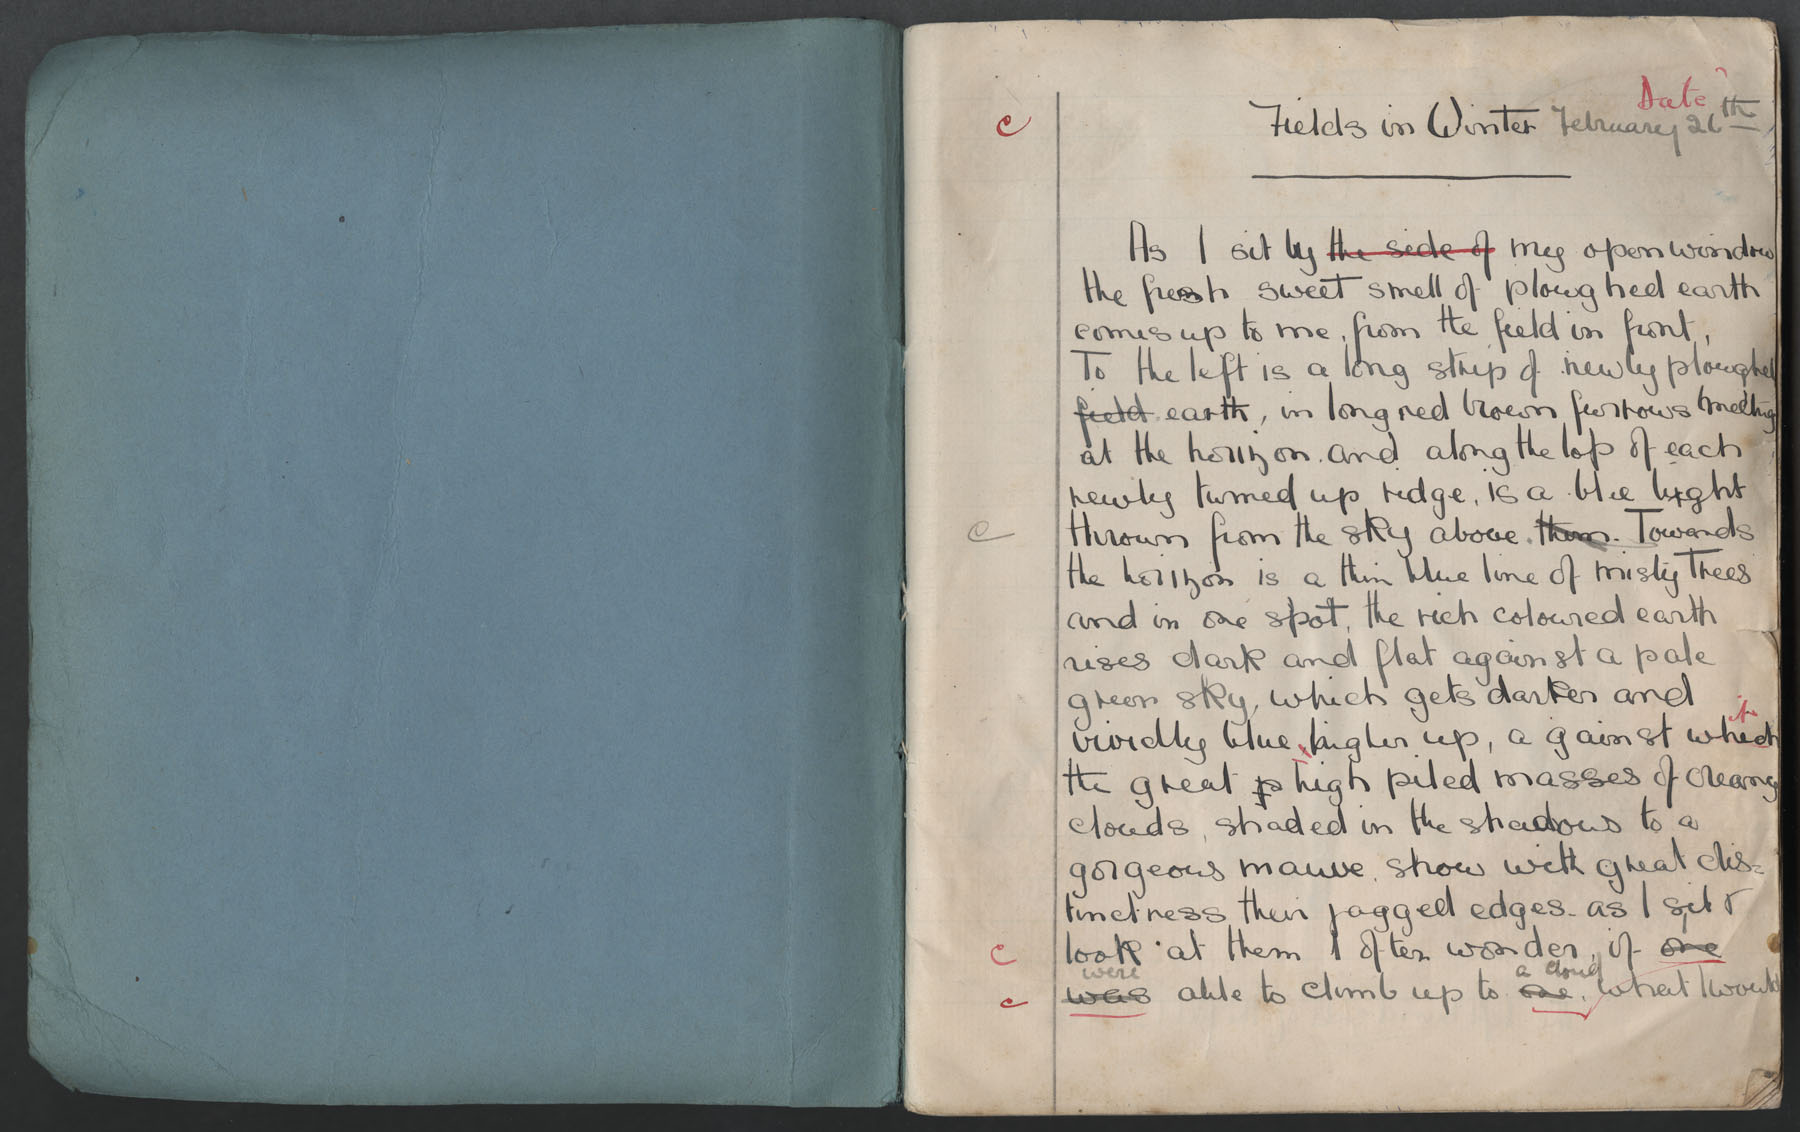 Date
c
Fields in Winter February 26th
As I sit by the side of my open window
the fresh sweet smell of ploughed earth
comes up to me, from the field in front,
To the left is a long strip of newly ploughed
field earth, in long red brown furrows meeting
at the horizon. and along the top of each
newly turned up ridge, is a blue light
c
thrown from the sky above. them. Towards
the horizon is a thin blue line of misty trees
and in one spot, the rich coloured earth
rises dark and flat against a pale
green sky, which gets darker and
vividly blue, higher up, against which
the great high piled masses of creamy
clouds, shaded in the shadows to a
gorgeous mauve, show with great dis=
tinctness their jagged edges. as I sit &
c
look at them I often wonder, if one
were a cloud
c
was able to climb up to one, what I would